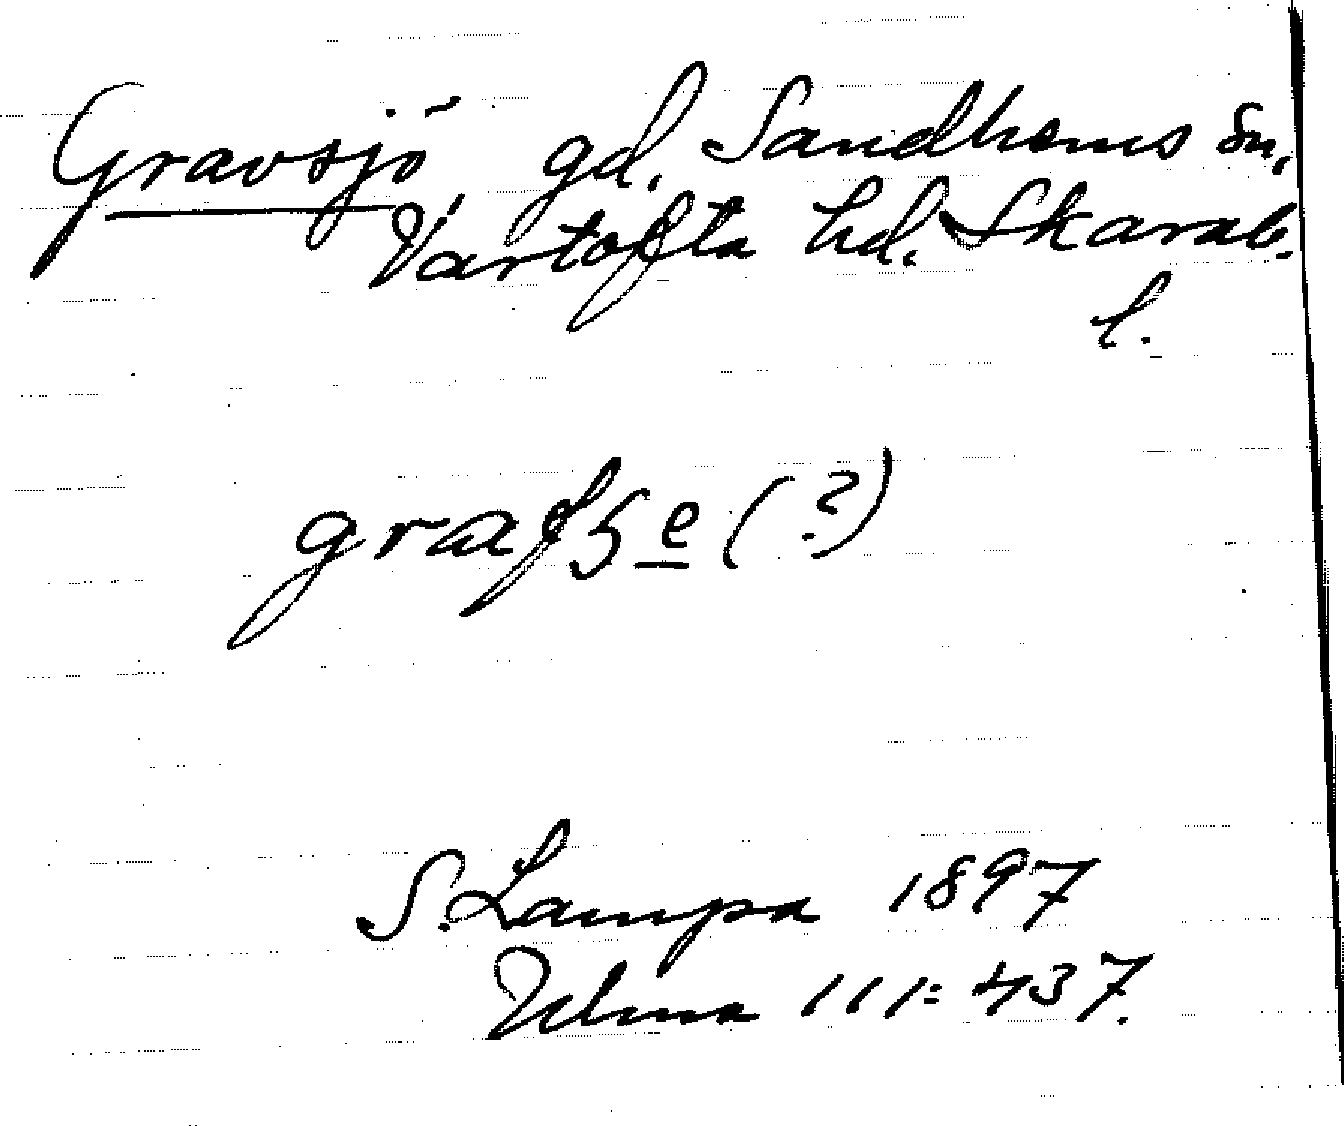 Gravsjö gd. Sandhems sn,
Vartofta hd. Skarab.
l.
grafʃe (?)
S. Lampa 1897
Ulma 111:437.